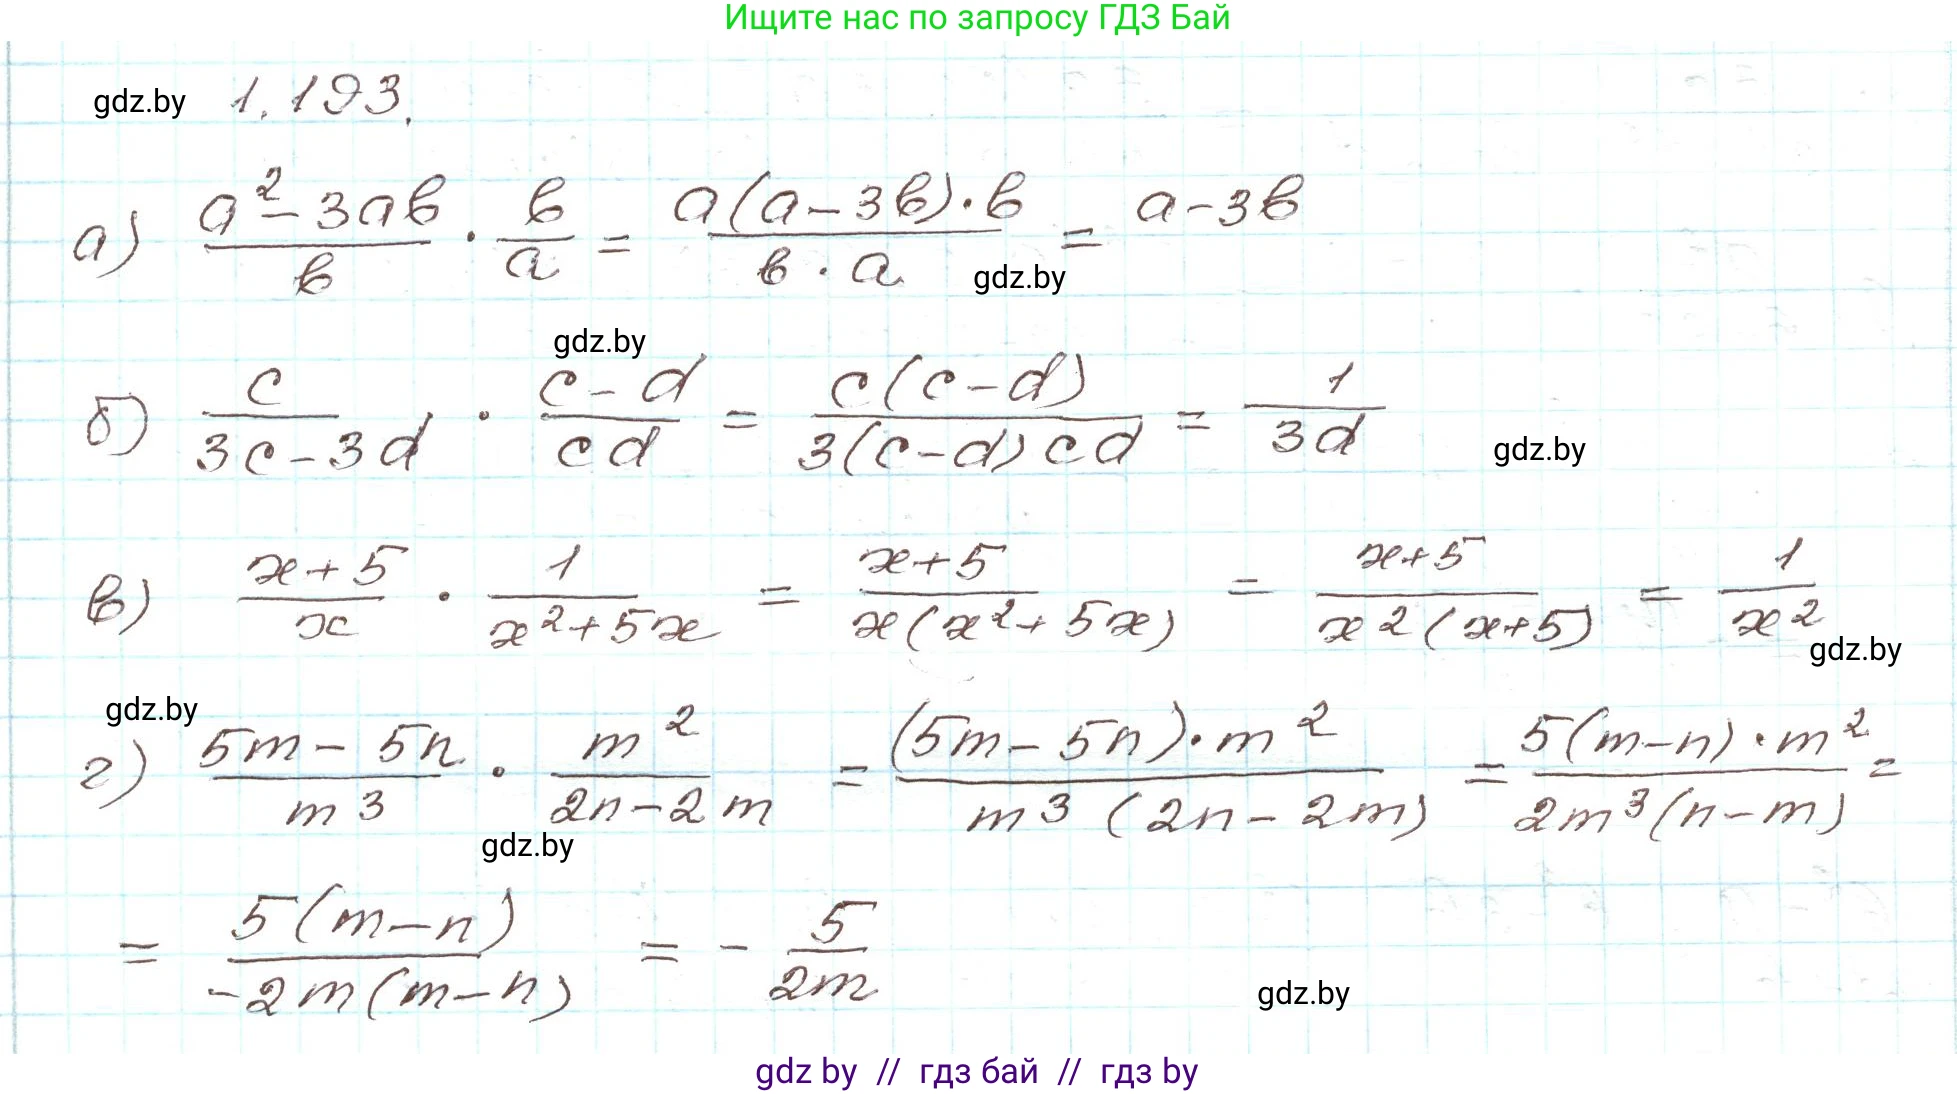 Ищите нас по запросу ГДЗ Бай
gdz.by 1.193.
а) \frac{a^2-3ab}{b} \cdot \frac{b}{a} = \frac{a(a-3b) \cdot b}{b \cdot a} = a-3b
gdz.by
gdz.by
б) \frac{c}{3c-3d} \cdot \frac{c-d}{cd} = \frac{c(c-d)}{3(c-d)cd} = \frac{1}{3d}
gdz.by
в) \frac{x+5}{x} \cdot \frac{1}{x^2+5x} = \frac{x+5}{x(x^2+5x)} = \frac{x+5}{x^2(x+5)} = \frac{1}{x^2}
gdz.by
gdz.by
г) \frac{5m-5n}{m^3} \cdot \frac{m^2}{2n-2m} = \frac{(5m-5n) \cdot m^2}{m^3(2n-2m)} = \frac{5(m-n) \cdot m^2}{2m^3(n-m)} =
gdz.by
= \frac{5(m-n)}{-2m(m-n)} = -\frac{5}{2m}
gdz.by
gdz by // гдз бай // гдз by